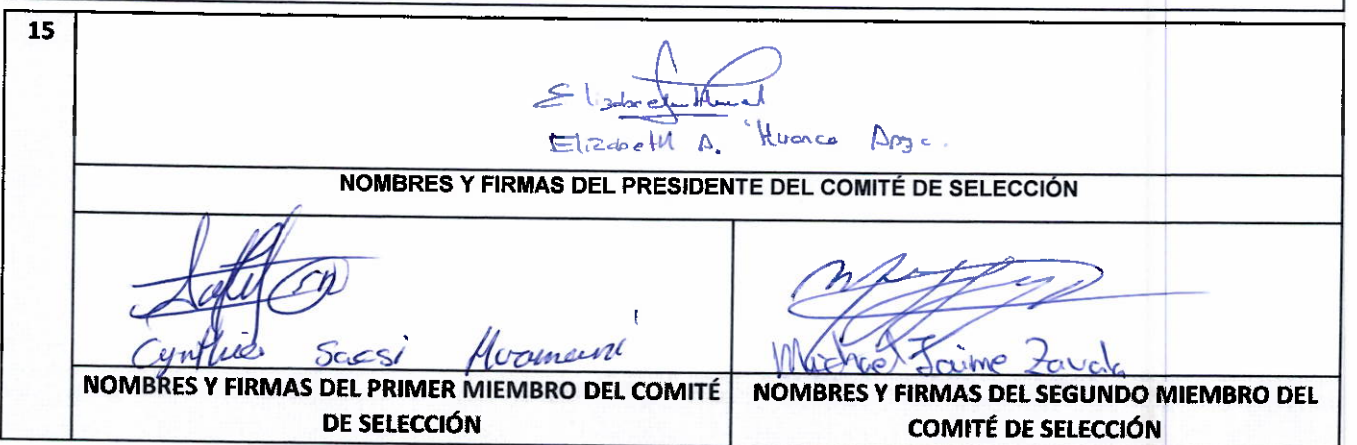 15
Elizabeth A. Huanca
NOMBRES Y FIRMAS DEL PRESIDENTE DEL COMITÉ DE SELECCIÓN
Cynthia Sacsi Huamaní
Michael Jaime Zavala
NOMBRES Y FIRMAS DEL PRIMER MIEMBRO DEL COMITÉ
DE SELECCIÓN
NOMBRES Y FIRMAS DEL SEGUNDO MIEMBRO DEL
COMITÉ DE SELECCIÓN